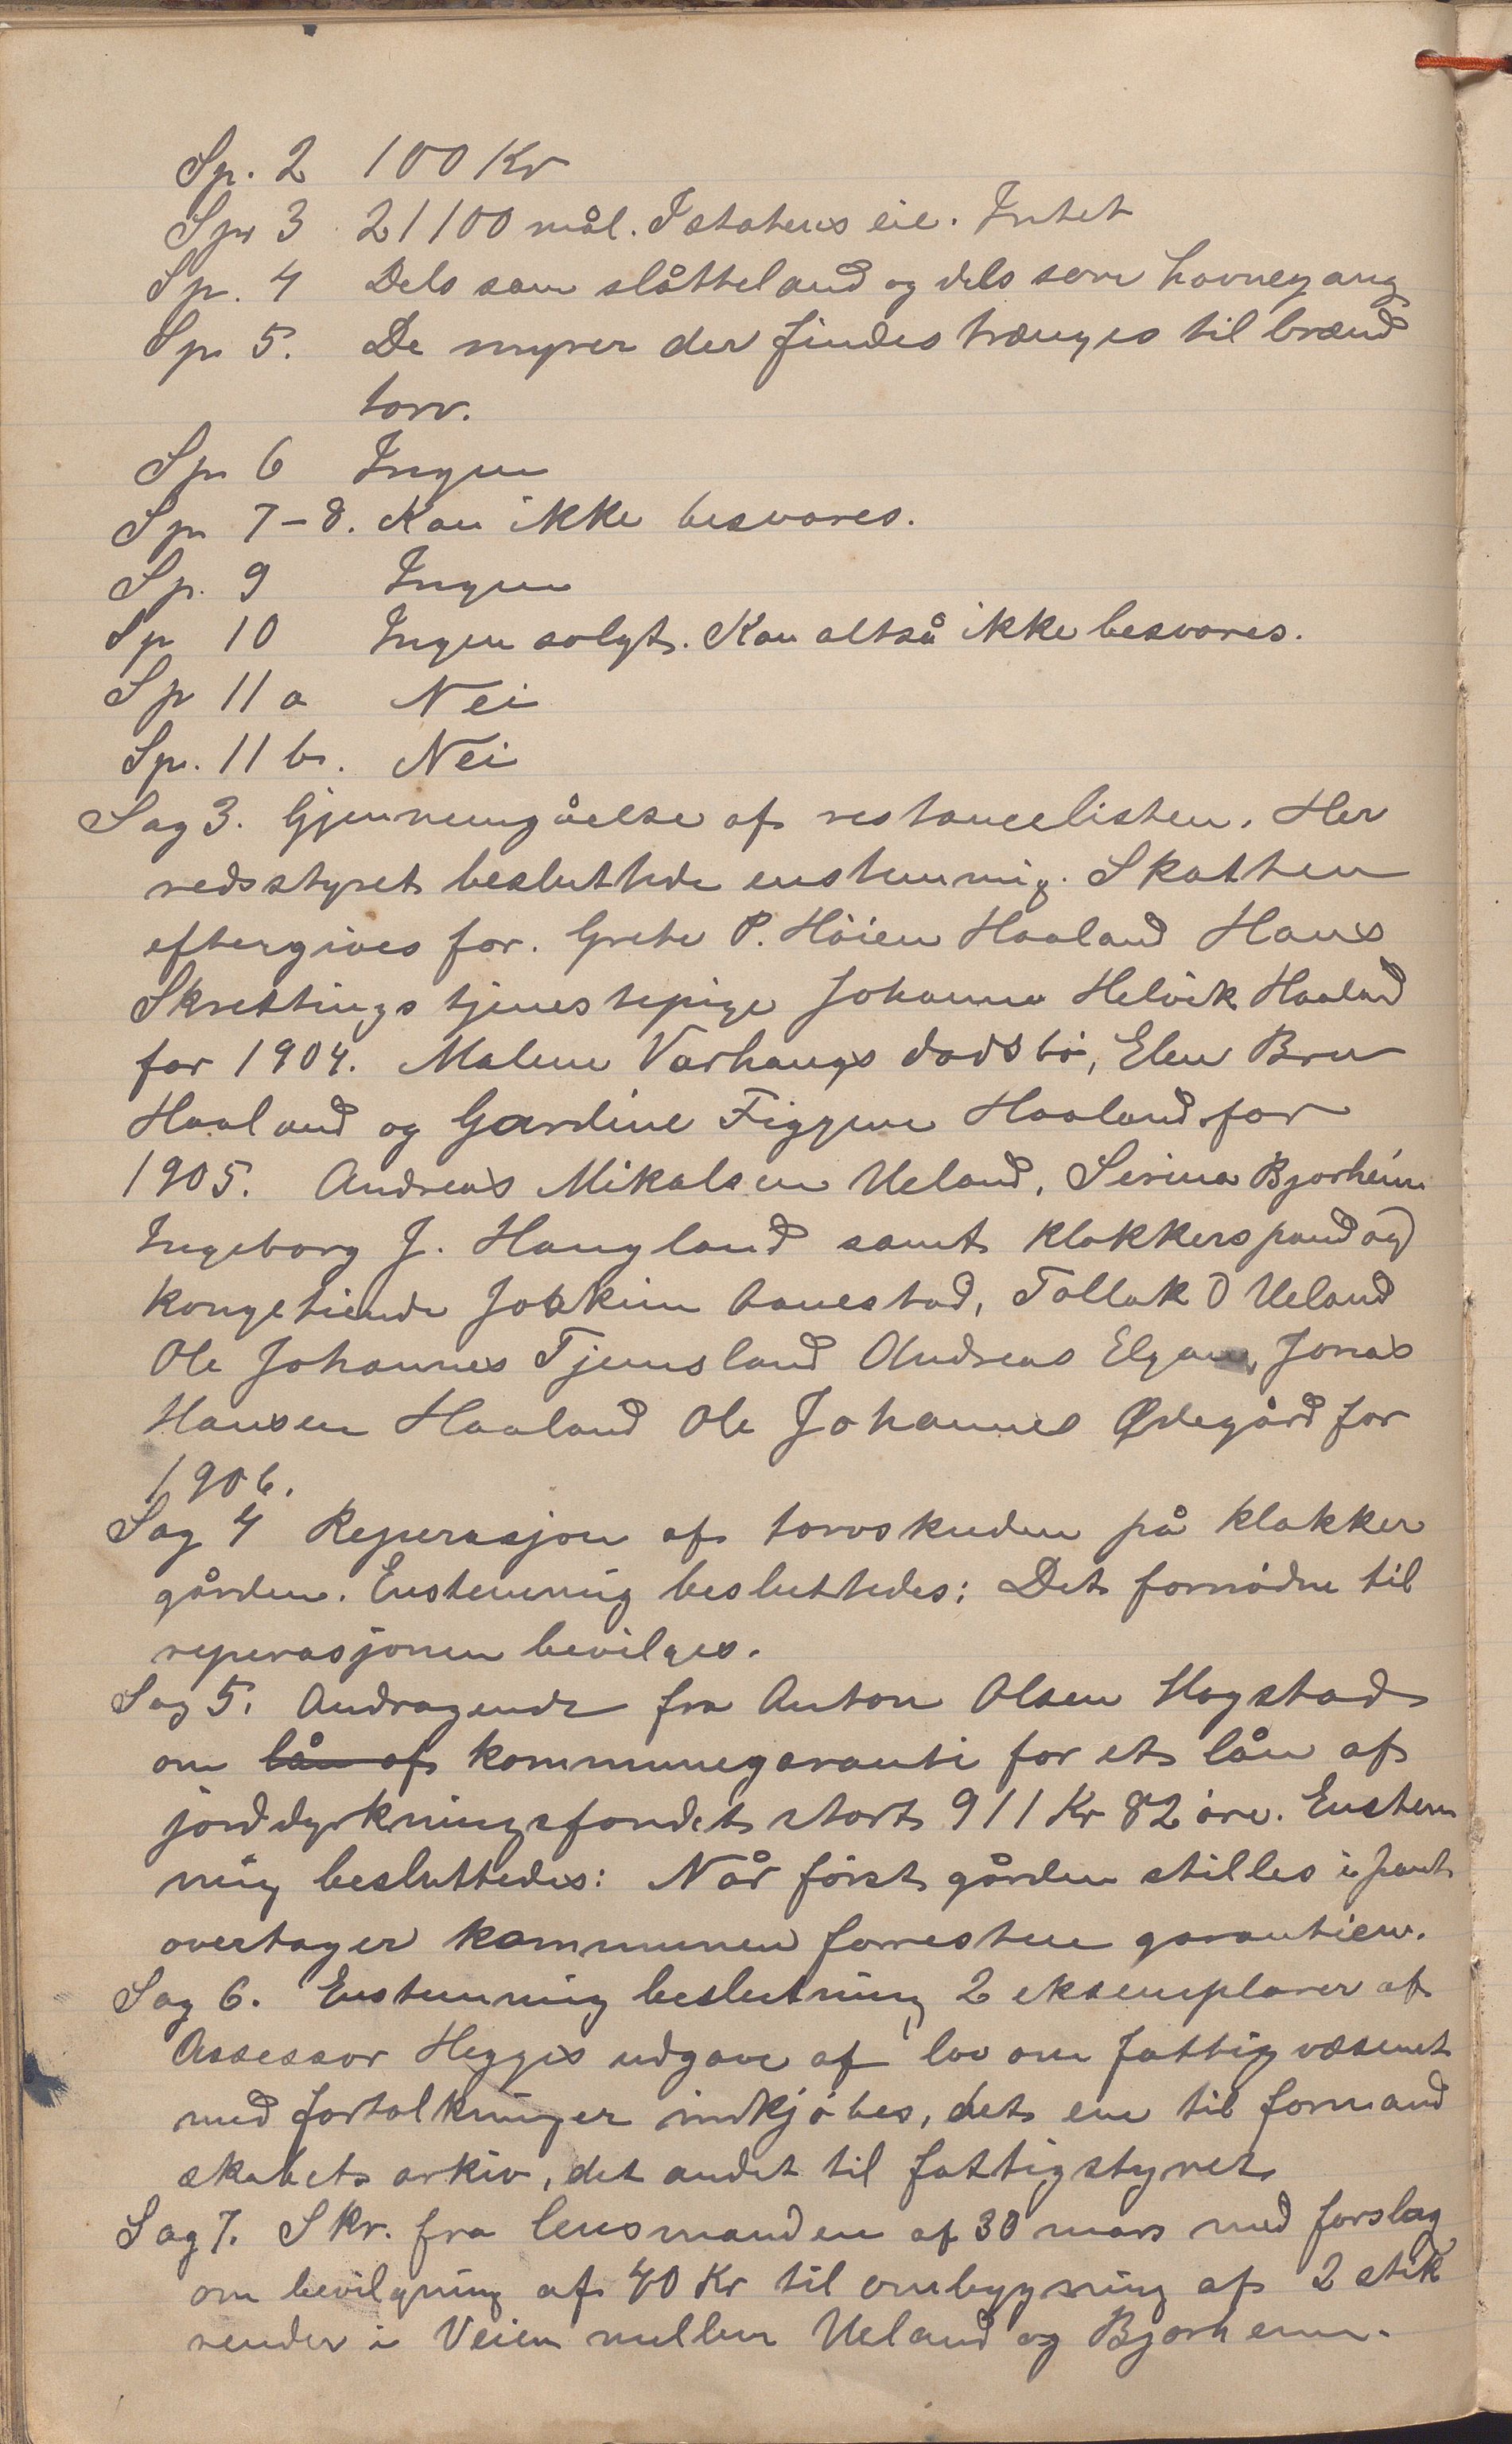 Sp. 2 100 Kr
Sp 3 21100 mål. Istatens eie. Intet
Sp. 4 Dels som slåtteland og dels som havnegang
Sp 5. De myrer der findes trænges til brænd
torv.
Sp 6 Ingen
Sp 7-8. Kan ikke besvares.
Sp. 9 Ingen
Sp 10 Ingen solgt. Kan altså ikke besvares.
Sp 11 a Nei
Sp. 11 b. Nei
Sag 3. Gjennemgåelse af restancelisten. Her
redsstyret besluttede enstemmig. Skatten
eftergives for. Grete P. Höien Haaland Hans
Skrettings tjenestepige Johanna Helvik Haaland
for 1904. Malene Varhaugs dødsbo, Elen Bru
Haaland og Gardine Figgen Haaland for
1905. Andreas Mikalsen Ueland, Serina Bjorheim
Ingeborg J. Haugland samt klokkerspand og
kongetiende Joakim Aanestad, Tollak O Ueland
Ole Johannes Tjemsland Andreas Elgane, Jonas
Hansen Haaland Ole Johannes Ødegård for
1906.
Sag 4 Reperasjon af torvskuden på klokker
gården. Enstemmig besluttedes: Det fornödne til
reperasjonen bevilges.
Sag 5. Andragende fra Anton Olsen Hogstad
om lån af kommunegaranti for et lån af
jorddyrkningsfondet stort 911 Kr 82 öre. Enstem
mig besluttedes: Når först gården stilles i pant
overtager kommunen forresten garantien.
Sag 6. Enstemmig beslutning 2 eksemplarer af
Assessor Hegges udgave af lov om fattigvæsenet
med fortolkninger indkjöbes, det ene til formand
skabets arkiv, det andet til fattigstyret
Sag 7. Skr. fra lensmanden af 30 mars med forslag
om bevilgning af 40 Kr til ombygning af 2 stik
render i Veien mellem Ueland og Bjorheim.